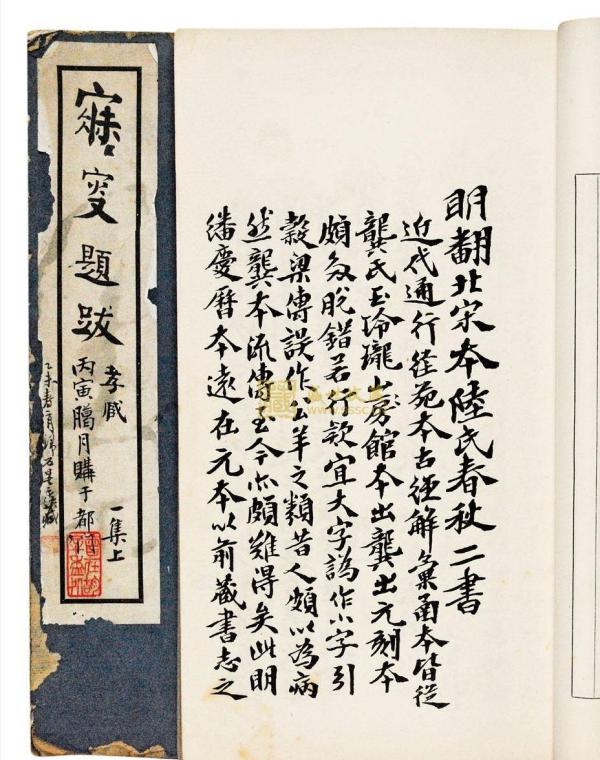 寐叟題跋
一集上
孝臧
丙寅臈月購于都
明翻北宋本陸氏春秋二書
近代通行経苑本古経解彙函本皆從
龔氏玉玲瓏山房館本出龔出元刻本
頗多脫錯若行款宜大字譌作小字引
穀梁傳誤作公羊之類昔人頗以為病
然龔本流傳至今亦頗難得矣此明
繙慶曆本遠在元本以前藏書志之